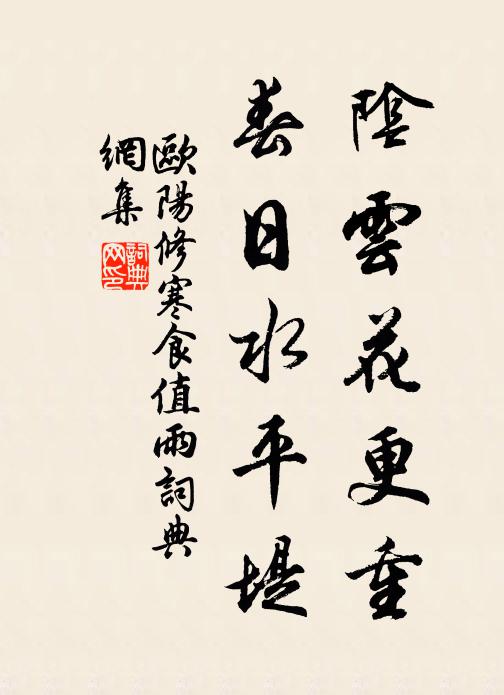 陰雲花更重
春日水平堤
歐陽修寒食值雨詞典
網集
詞典
网印